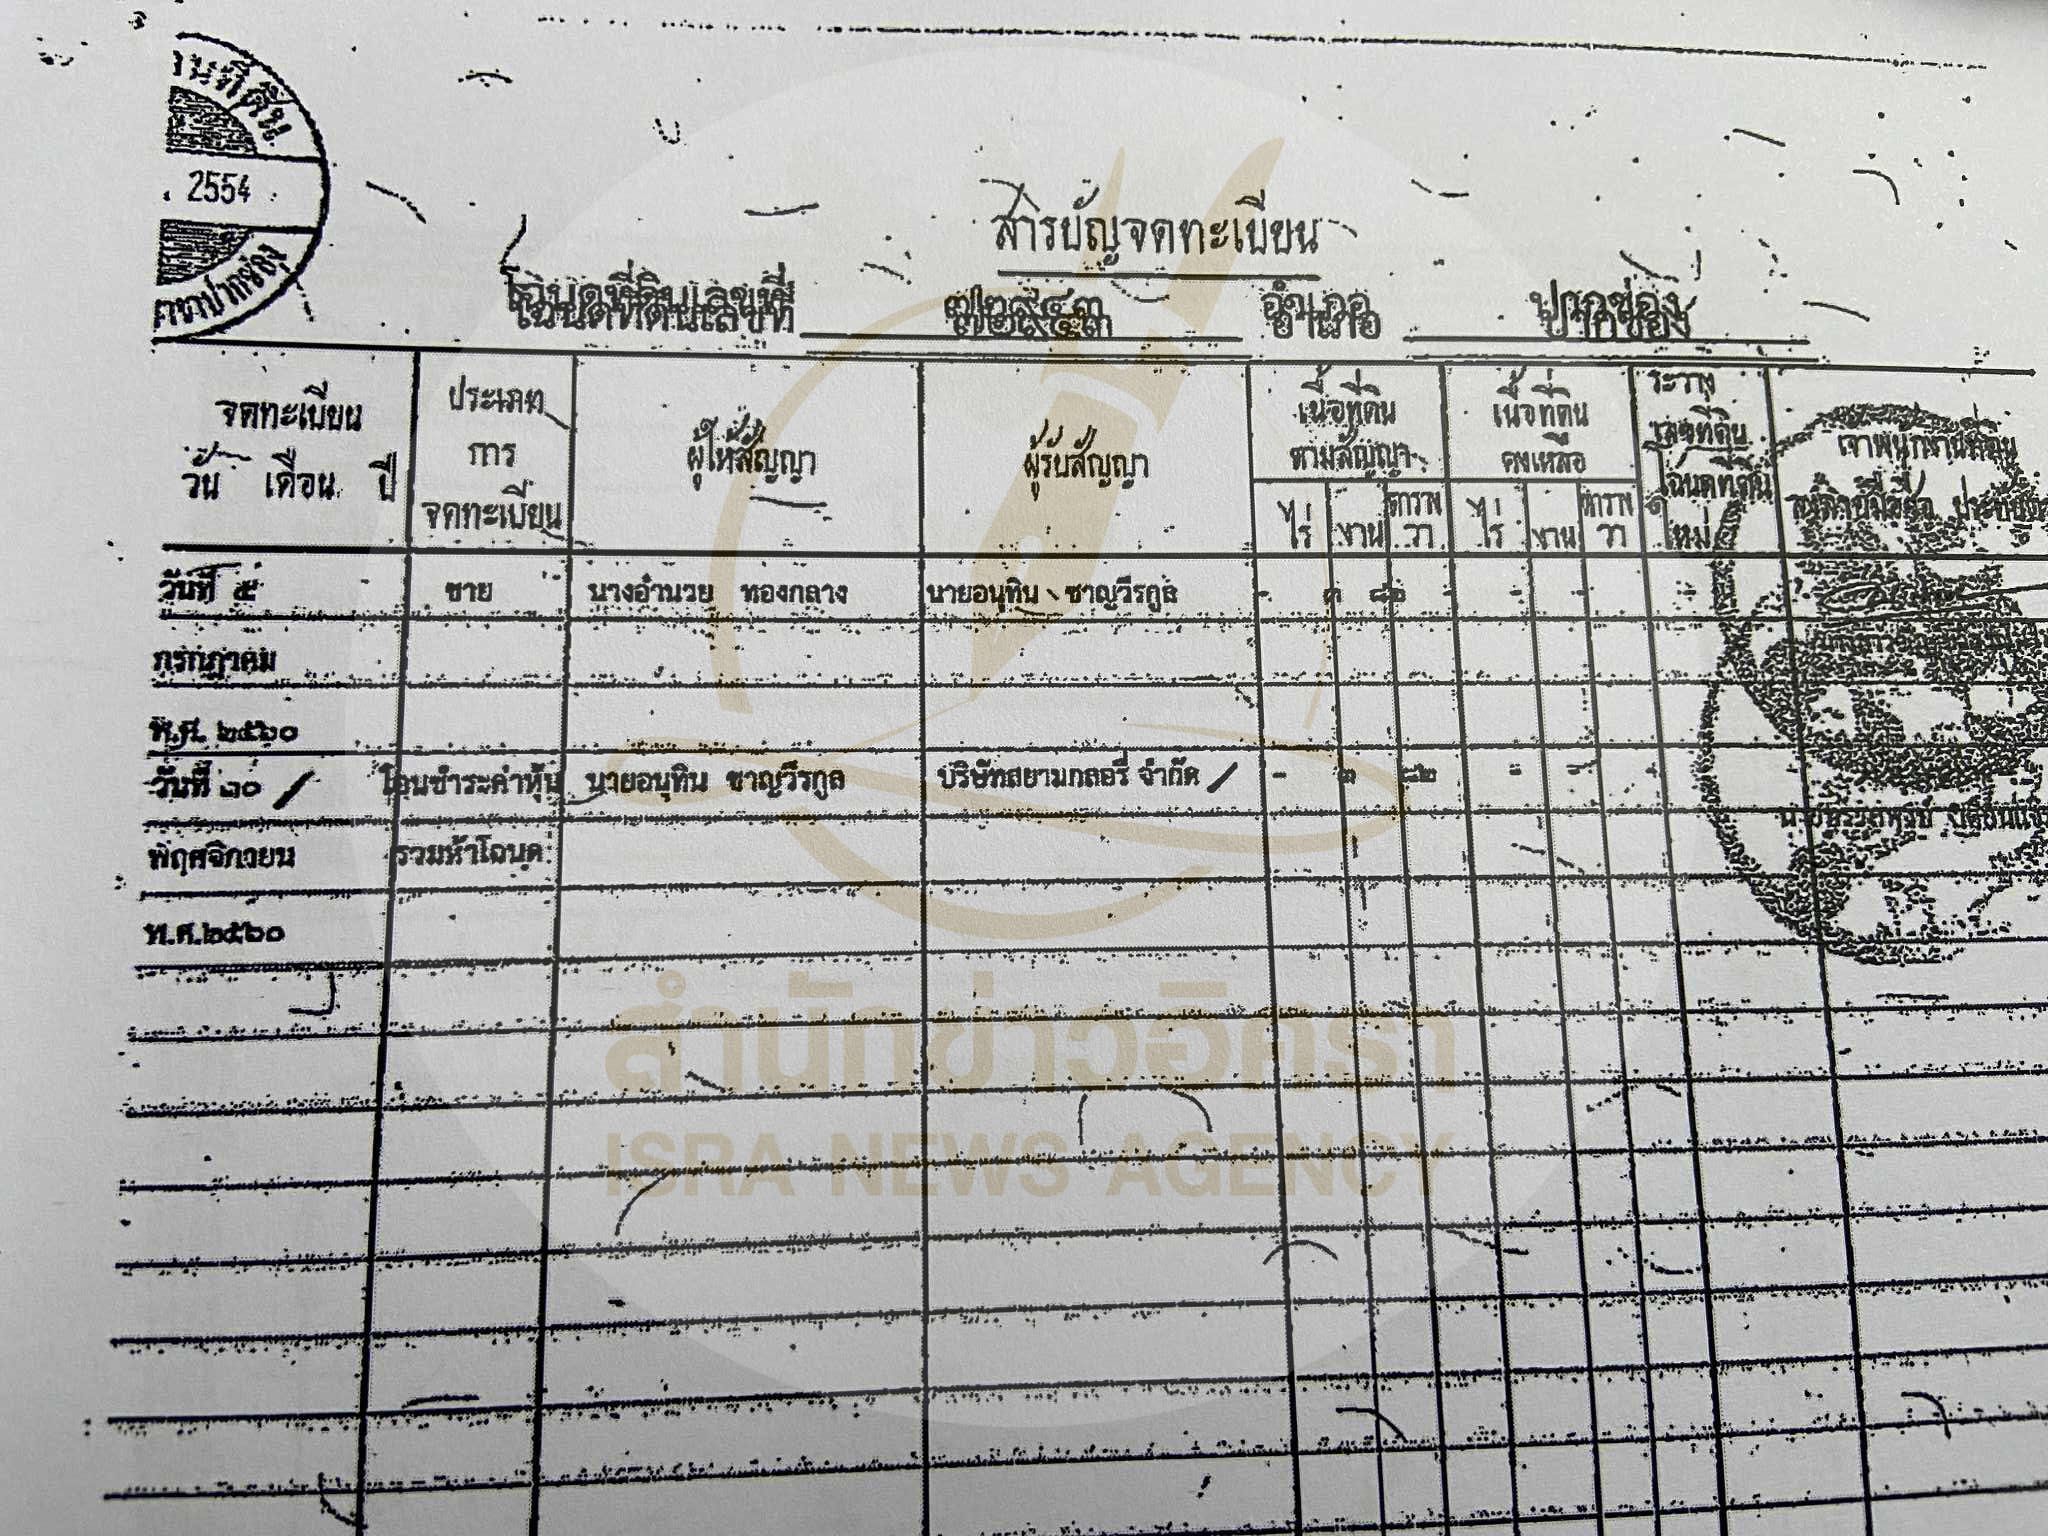 านที่ดิน
2554
สารบัญจดทะเบียน
โฉนดที่ดินเลขที่ ๗๒๙๔๓ อำเภอ ปากช่อง
จดทะเบียน
วัน เดือน ปี
ประเภท
การ
จดทะเบียน
ผู้ให้สัญญา
ผู้รับสัญญา
เนื้อที่ดิน
ตามสัญญา
ไร่ งาน ตาราง
วา
เนื้อที่ดิน
คงเหลือ
ไร่ งาน ตาราง
วา
ระวาง
เลขที่ดิน
โฉนดที่ดิน
ใหม่
เจ้าพนักงานที่ดิน
วันที่ ๕ ขาย นางอำนวย ทองกลาง นายอนุทิน ชาญวีรกูล - ๓ ๘๒ - - -
กรกฎาคม
พ.ศ. ๒๕๖๐
วันที่ ๒๐ โอนชำระค่าหุ้น นายอนุทิน ชาญวีรกูล บริษัทสยามกลอรี่ จำกัด - ๓ ๘๒ - - -
พฤศจิกายน รวมห้าโฉนด
พ.ศ.๒๕๖๐
สำนักข่าวอิศรา
ISRA NEWS AGENCY